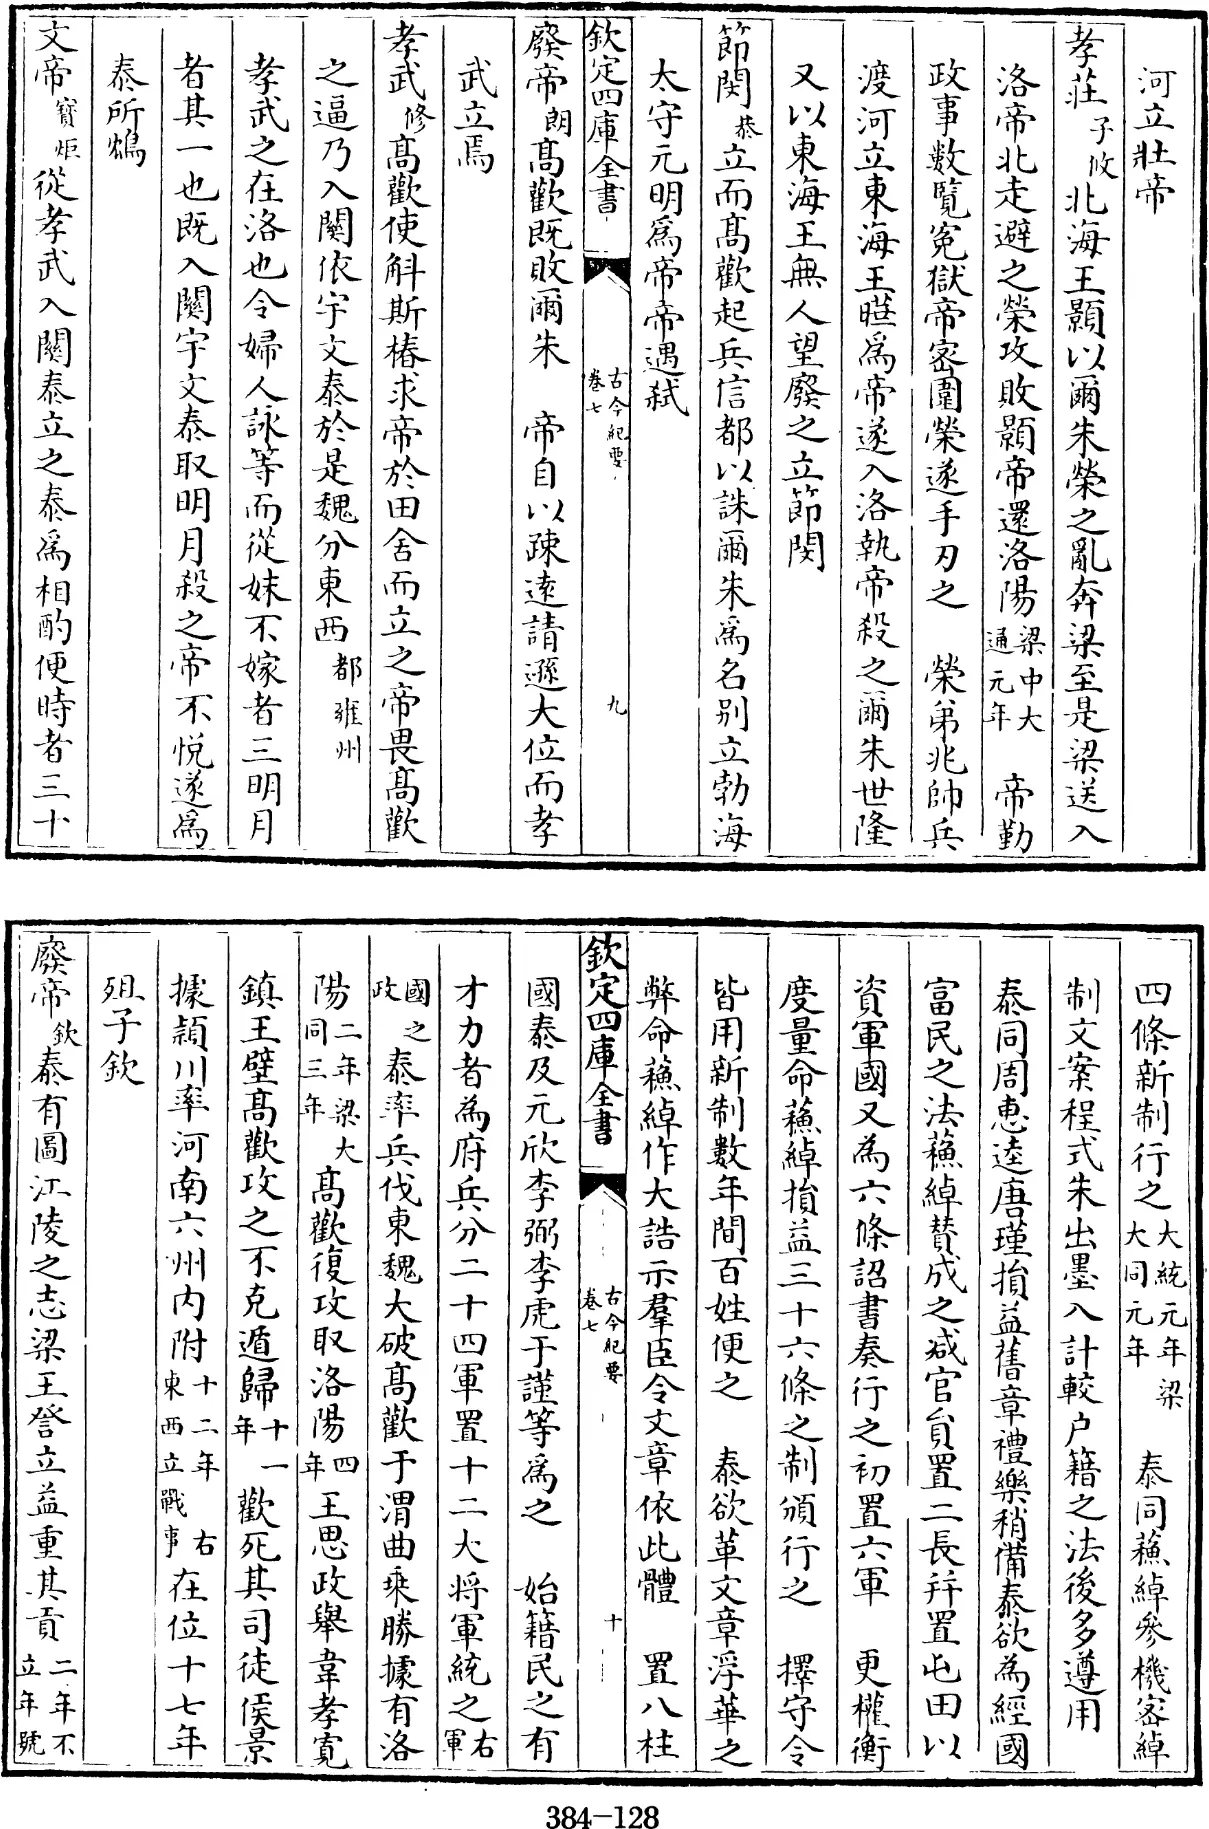 河立壯帝
孝莊子攸北海王顥以爾朱榮之亂奔梁至是梁送入
洛帝北走避之榮攻敗顥帝還洛陽梁中大通元年 帝勤
政事數覽寃獄帝密圖榮遂手刃之 榮弟兆帥兵
渡河立東海王曄爲帝遂入洛執帝殺之爾朱世隆
又以東海王無人望廢之立節閔
節閔恭立而髙歡起兵信都以誅爾朱爲名別立勃海
太守元明爲帝帝遇弑
欽定四庫全書 古今紀要卷七 九
廢帝朗髙歡既敗爾朱 帝自以疎逺請遜大位而孝
武立焉
孝武修髙歡使斛斯椿求帝於田舍而立之帝畏髙歡
之逼乃入關依宇文泰於是魏分東西都雍州
孝武之在洛也令婦人詠等而從妹不嫁者三明月
者其一也既入關宇文泰取明月殺之帝不悅遂爲
泰所鴆
文帝寳炬從孝武入關泰立之泰爲相酌便時者三十
四條新制行之大統元年梁大同元年 泰同蘓綽參機密綽
制文案程式朱出墨入計較户籍之法後多遵用
泰同周惠逵唐瑾損益舊章禮樂稍備泰欲為經國
富民之法蘓綽賛成之减官貟置二長幷置屯田以
資軍國又為六條詔書奏行之初置六軍 更權衡
度量命蘓綽損益三十六條之制頒行之 擇守令
皆用新制數年間百姓便之 泰欲革文章浮華之
弊命蘓綽作大誥示羣臣令文章依此體 置八柱
欽定四庫全書 古今紀要卷七 十
國泰及元欣李弼李虎于謹等爲之 始籍民之有
才力者為府兵分二十四軍置十二大將軍統之右軍
國之政泰率兵伐東魏大破髙歡于渭曲乗勝據有洛
陽二年梁大同三年 髙歡復攻取洛陽四年王思政舉韋孝寛
鎮王壁髙歡攻之不克遁歸十一年 歡死其司徒侯景
據頴川率河南六州内附十二年右東西立戰事在位十七年
殂子欽
廢帝欽泰有圖江陵之志梁王詧立益重其貢二年不立年號
384-128